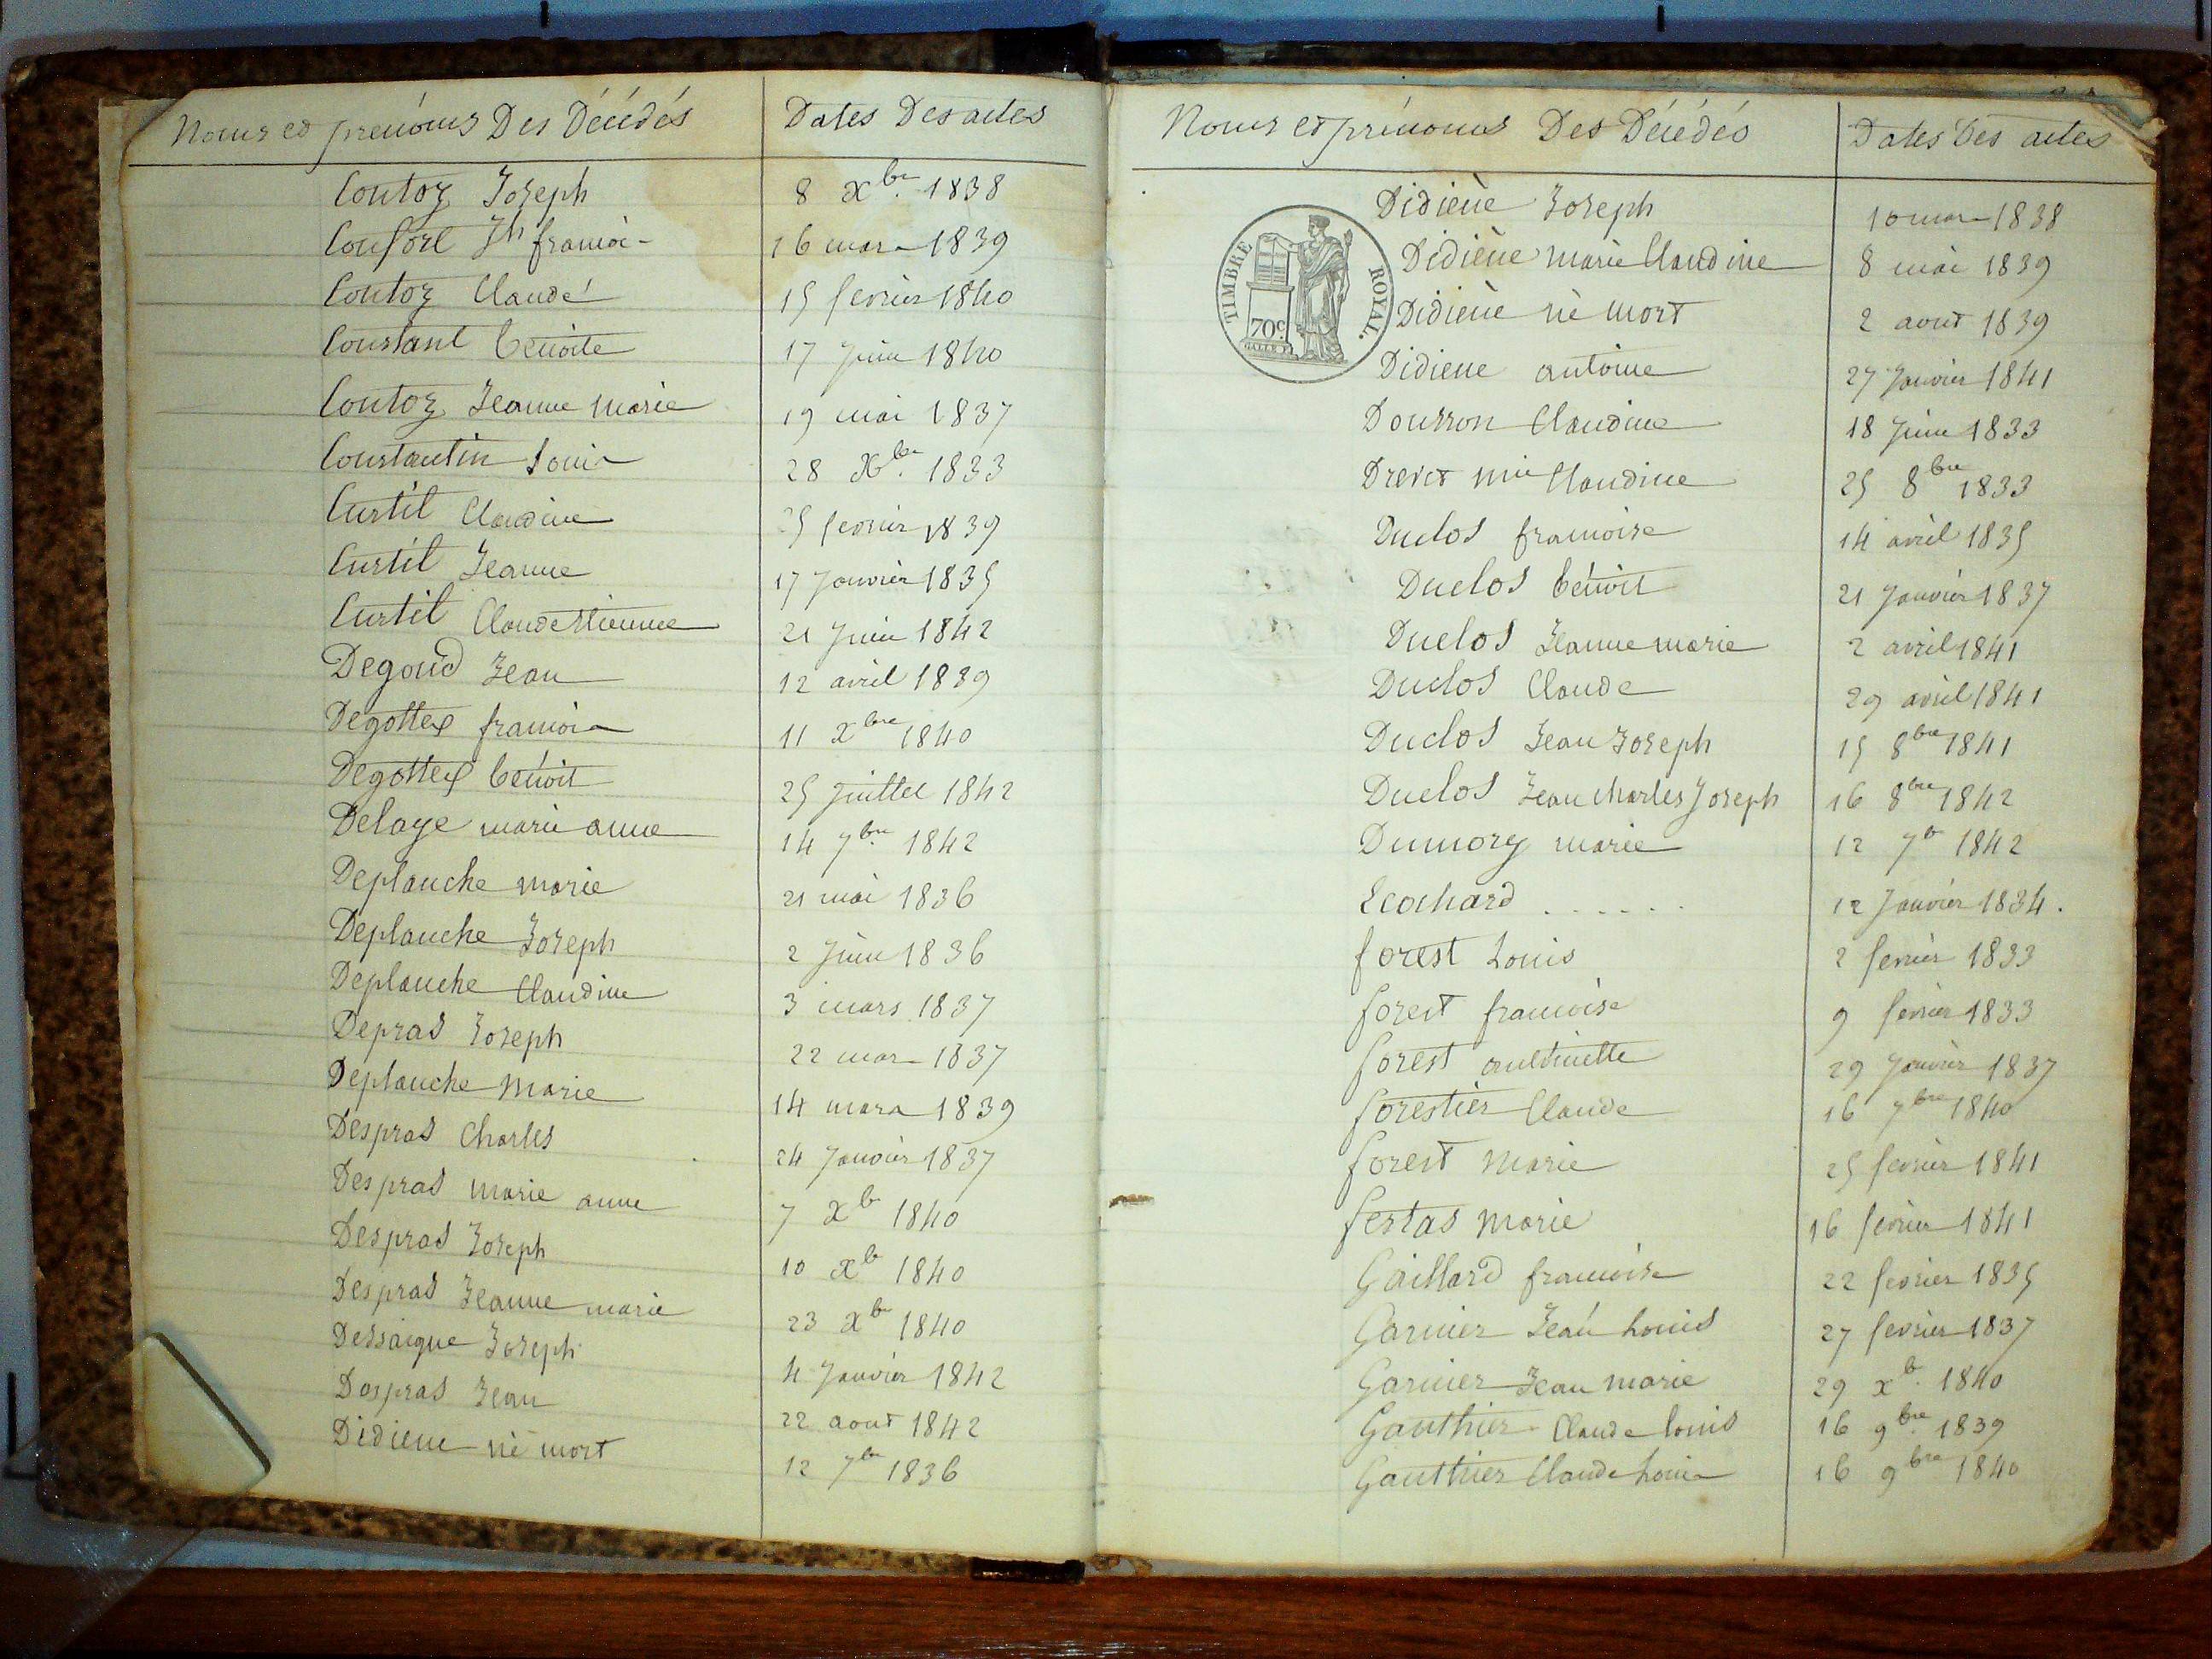 Noms et prénoms Des Décédés Dates Des actes
Contoz Joseph 8 Xbre. 1838
Confort Jh françois 16 mars 1839
Contoz Claude 15 fevrier 1840
Constant benoite 17 Juin 1840
Contoz Jeanne Marie 19 mai 1837
Constantin Louis 28 Xbre. 1833
Curtil Claudine 25 fevrier 1839
Curtil Jeanne 17 Janvier 1835
Curtil Claude Etiennne 21 Juin 1842
Degoud Jean 12 avril 1839
Degottex françois 11 Xbre 1840
Degottex benoit 25 Juillet 1842
Delaye marie anne 14 7bre. 1842
Deplanche marie 21 mai 1836
Deplanche Joseph 2 Juin 1836
Deplanche Claudine 3 mars 1837
Depras Joseph 22 mars 1837
Deplanche Marie 14 mars 1839
Despras Charles 24 Janvier 1837
Despras marie anne 7 Xb 1840
Despras Joseph 10 Xb 1840
Despras Jeanne marie 23 Xbre 1840
Dessaigne Joseph 4 Janvier 1842
Despras Jean 22 aout 1842
Didiene né mort 12 7bre 1836
Noms et prénoms Des Décédés Dates Des actes
TIMBRE ROYAL.
70c
Didiène Joseph 10 mars 1838
Didiène marie Claudine 8 mai 1839
Didiène né mort 2 aout 1839
Didiene antoine 27 Janvier 1841
Dousson Claudine 18 Juin 1833
Drevet mie Claudine 25 8bre 1833
Duclos francoise 14 avril 1835
Duclos benoit 21 Janvier 1837
Duclos Jeanne marie 2 avril 1841
Duclos Claude 29 avril 1841
Duclos Jean Joseph 15 8bre 1841
Duclos Jean Charles Joseph 16 8bre 1842
Dumorey marie 12 7b 1842
Ecochard ...... 12 Janvier 1834.
forest Louis 2 fevrier 1833
forest francoise 9 fevrier 1833
forest anthinette 29 Janvier 1837
forestier Claude 16 7bre 1840
forest Marie 25 fevrier 1841
fertas Marie 16 fevrier 1841
Gaillard francoise 22 fevrier 1835
Garnier Jean Louis 27 fevrier 1837
Garnier Jean marie 29 xb. 1840
Gauthier Claude Louis 16 9bre. 1839
Gauthier Claude Louis 16 9bre 1840